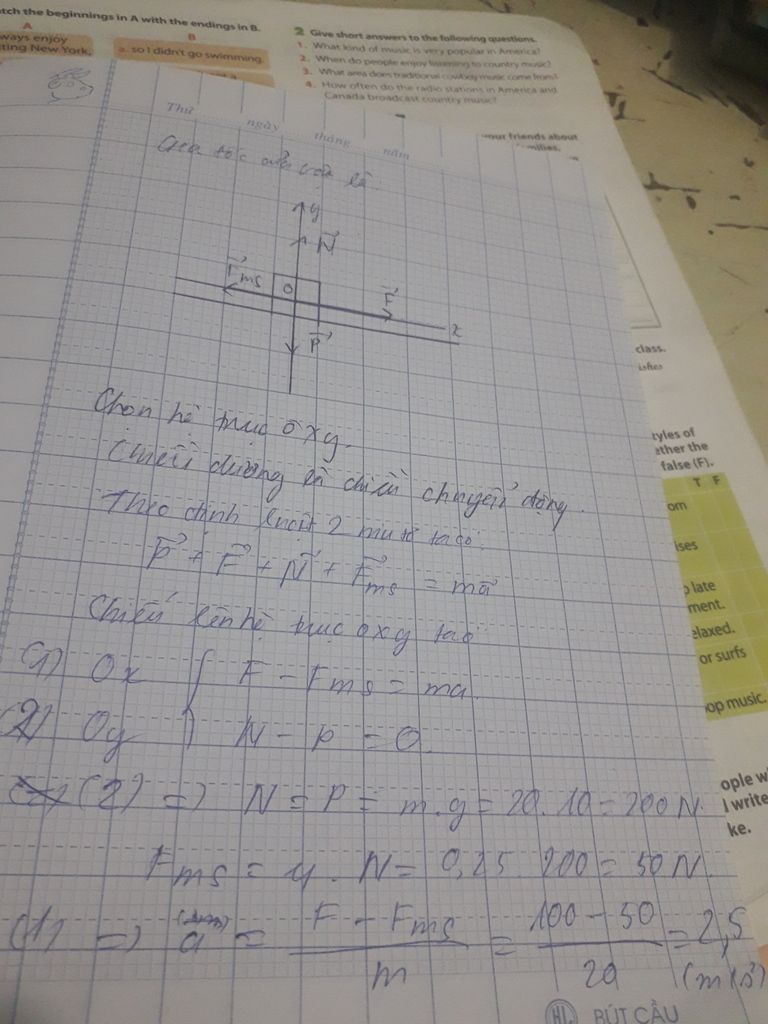 tch the beginnings in A with the endings in B.
A
B
ways enjoy
ting New York.
a. so I didn't go swimming.
2 Give short answers to the following questions.
1. What kind of music is very popular in America?
2. When do people enjoy listening to country music?
3. What area does traditional cowboy music come from?
4. How often do the radio stations in America and
Canada broadcast country music?
your friends about
milies.
Thứ ngày tháng năm
Gia tốc của vật là
y
N
Fms
O
F
x
P
Chọn hệ trục Oxy.
Chiều dương là chiều chuyển động.
Theo định luật 2 niu tơ ta có:
P + F + N + Fms = ma
Chiếu lên hệ trục Oxy ta có
(1) Ox { F - Fms = ma.
(2) Oy N - P = 0.
(2) => N = P = m.g = 20.10 = 200 N.
Fms = μ. N = 0,25. 200 = 50 N.
(1) => a = F - Fms / m = 100 - 50 / 20 = 2,5
(m/s²)
class.
ishes
tyles of
ether the
false (F).
T F
om
ises
late
ment.
elaxed.
or surfs
op music.
ople w
I write
ke.
HL BÚT CẦU